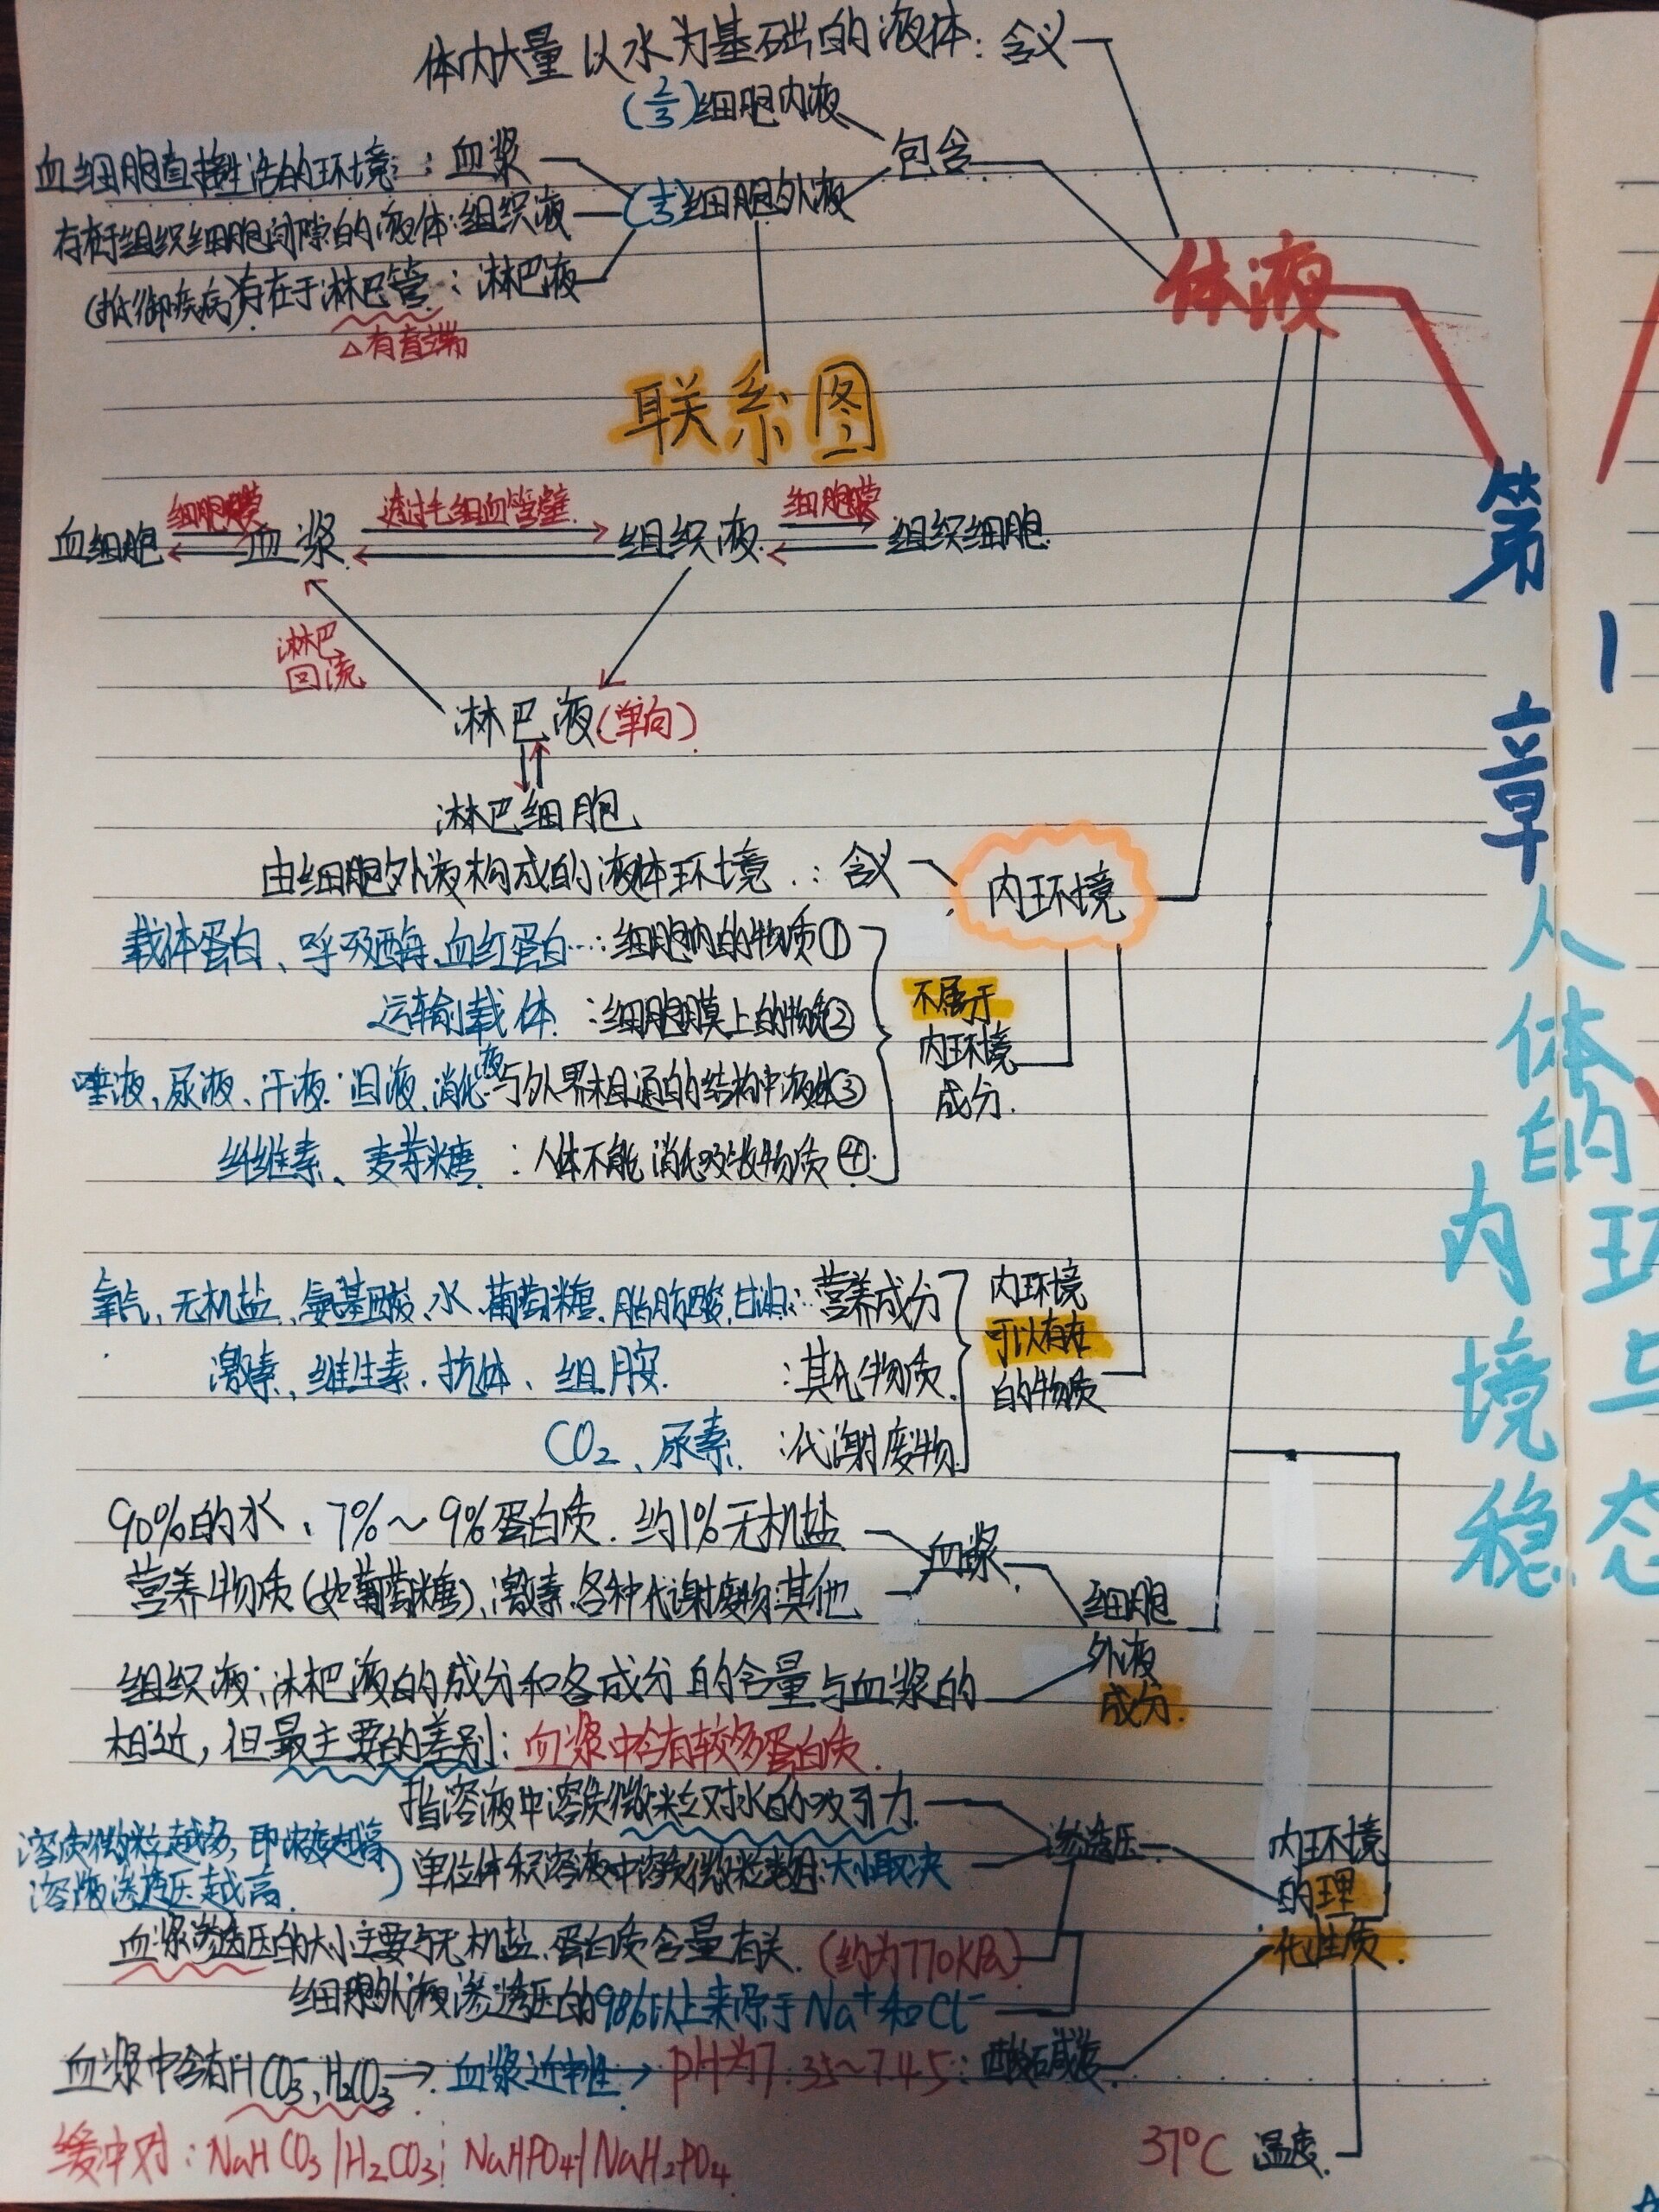 体内大量以水为基础的液体：含义
(2/3)细胞内液
包含
血细胞直接生活的环境：血浆
(1/3)细胞外液
存在于组织细胞间隙的液体：组织液
(抵御疾病)存在于淋巴管：淋巴液
△有盲端
体液
联系图
细胞膜
透过毛细血管壁
细胞膜
血细胞
血浆
组织液
组织细胞
淋巴
回流
淋巴液(单向)
淋巴细胞
由细胞外液构成的液体环境：含义
内环境
载体蛋白、呼吸酶、血红蛋白…：细胞内的物质①
运输载体：细胞膜上的物质②
唾液、尿液、汗液、泪液、消化液：与外界相通的结构中液体③
纤维素、麦芽糖：人体不能消化吸收物质④
不属于
内环境
成分.
氧气、无机盐、氨基酸、水、葡萄糖、脂肪酸、甘油…：营养成分
激素、维生素、抗体、组胺：其他物质
CO₂、尿素：代谢废物
内环境
可以存在
的物质
90%的水、7%～9%蛋白质、约1%无机盐
营养物质(如葡萄糖)、激素、各种代谢废物：其他
血浆
细胞
外液
成分.
组织液：淋巴液的成分和各成分的含量与血浆的
相近，但最主要的差别：血浆中含有较多蛋白质
指溶液中溶质微粒对水的吸引力
溶质微粒越多，即浓度越高
溶液渗透压越高
单位体积溶液中溶质微粒数目：大小取决
渗透压
血浆渗透压的大小主要与无机盐、蛋白质含量有关.(约为770KPa)
细胞外液渗透压的90%以上来源于Na⁺和Cl⁻
内环境
的理
化性质.
血浆中含有HCO₃⁻、H₂CO₃→血浆近中性→pH为7.35～7.45：酸碱度
缓冲对：NaHCO₃/H₂CO₃；NaHPO₄/NaH₂PO₄
37°C 温度
第1章
人体的
内环境与
稳态